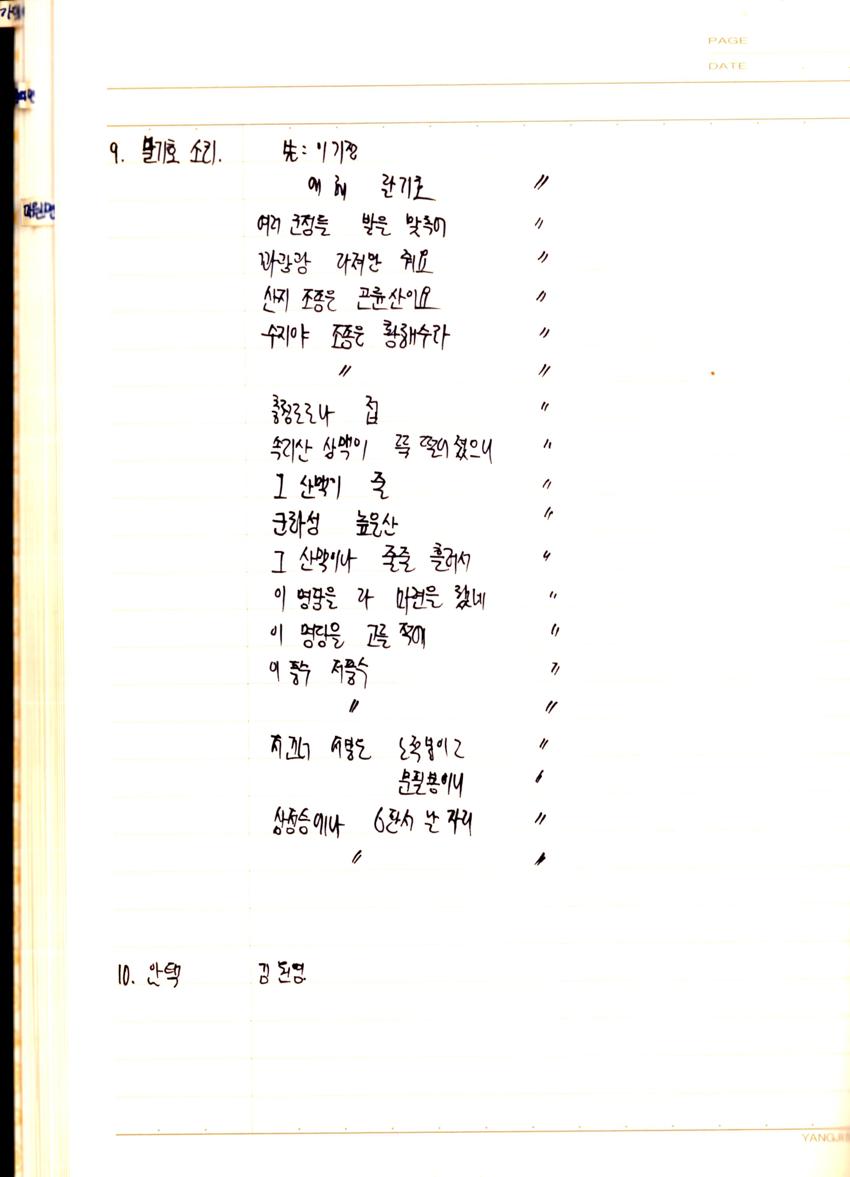 PAGE
DATE
9. 달기호 소리. 先: 이기정
에 헤 란기호 〃
여러 군정들 발을 맞추어 〃
꽈광광 다져만 줘요 〃
산지 조종은 곤륜산이요 〃
수지야 조종은 황해수라 〃
〃 〃
충청도로나 접 〃
속리산 상맥이 뚝 떨어졌으니 〃
그 산맥이 줄 〃
군라성 높은산 〃
그 산맥이나 줄줄 흘러서 〃
이 명당을 다 마련을 했네 〃
이 명당을 고를 적에 〃
이 풍수 저풍수 〃
〃 〃
노족봉이고 〃
문필봉이니 〃
삼정승에나 6판서 난 자리 〃
〃 〃
10. 안택 김
YANGJI